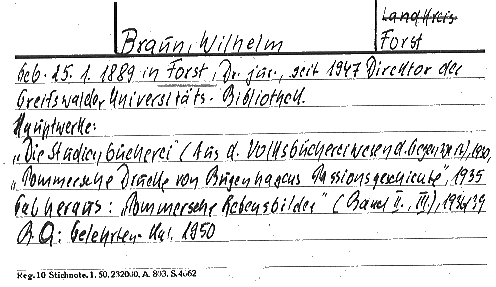 Landkreis
Braun, Wilhelm
Forst
Geb. 25. 1. 1889 in Forst, Dr. jur., seit 1947 Direktor der
Greifswalder Universitäts-Bibliothek.
Hauptwerke:
„Die Stadtbücherei (Aus d. Volksbüchereiwesen d. Gegenw.), 1930,
„Pommersche Drucke von Bugenhagens Passionsgeschichte", 1935
Gab heraus: „Pommersche Lebensbilder" (Band II. III), 1936/39
BQ: Gelehrten-Kal. 1950
Reg. 10 Stichnote. 1. 50. 232000. A. 803. S. 4662